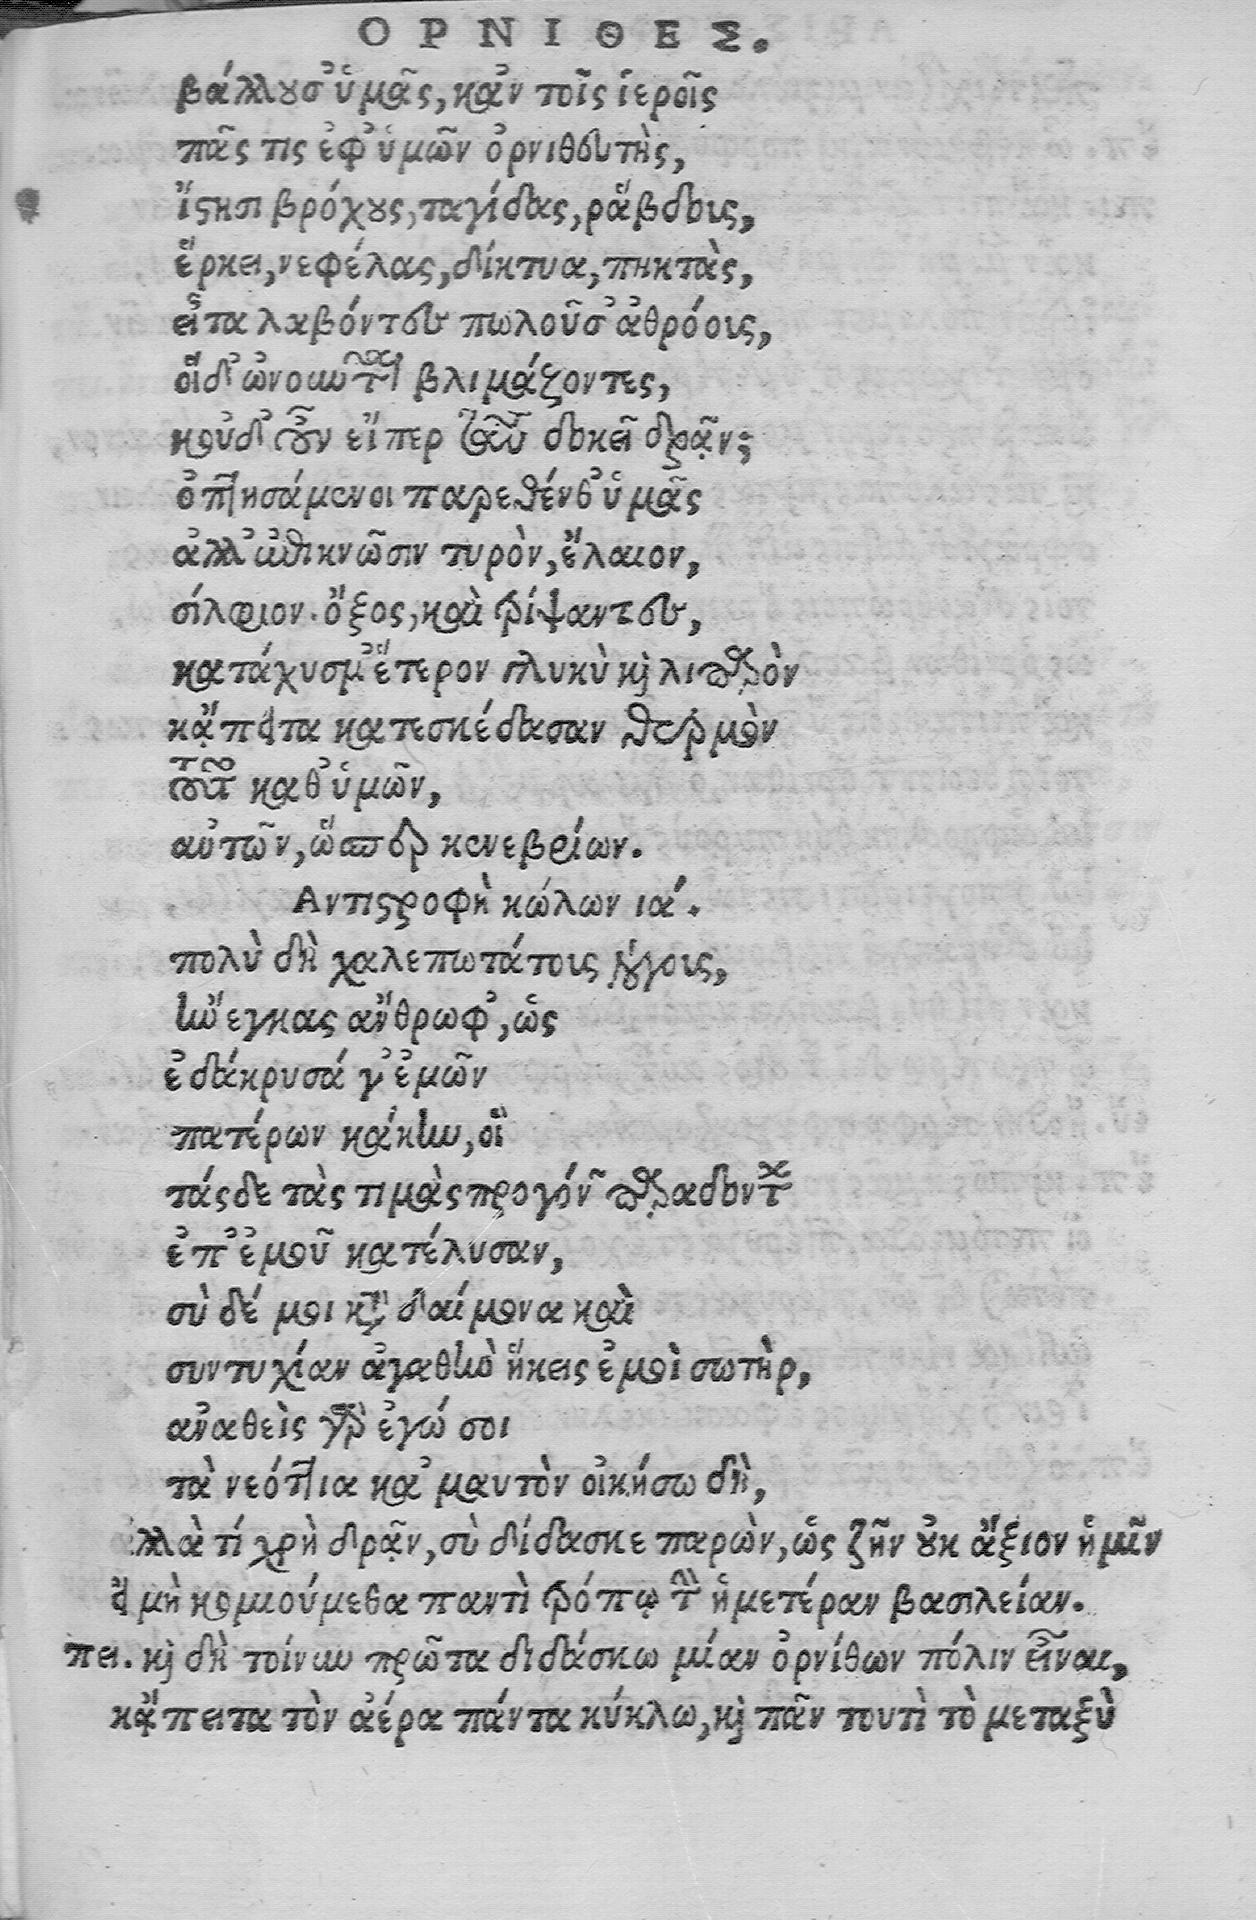 ΟΡΝΙΘΕΣ.
βάλλουσ' ὑμᾶς, κἀν τοῖς ἱεροῖς
πᾶς τις ἐφ' ὑμῶν ὀρνιθευτὴς,
ἵστησι βρόχους, παγίδας, ῥάβδους,
ἕρκει, νεφέλας, δίκτυα, πηκτὰς,
εἶτα λαβόντες πωλοῦσ' ἀθρόους,
οἱ δ' ὠνοῦνται βλιμάζοντες,
κοὐδ' οὖν εἴπερ ταῦτα δοκεῖ δρᾷν;
ὀπτησάμενοι παρεθένθ' ὑμᾶς
ἀλλ' ἐπικνῶσιν τυρὸν, ἔλαιον,
σίλφιον. ὄξος, καὶ τρίψαντες,
κατάχυσμ' ἕτερον γλυκὺ καὶ λιπαρὸν
κᾄπειτα κατεσκέδασαν θερμὸν
τοῦτο καθ' ὑμῶν,
αὐτῶν, ὥσπερ κενεβρίων.
Αντιστροφὴ κώλων ια'.
πολὺ δὴ χαλεπωτάτους λόγους,
ἤνεγκας ἄνθρωφ', ὡς
ἐδάκρυσά γ' ἐμῶν
πατέρων κάκην, οἳ
τάσδε τὰς τιμὰς προγόνων παραδόντων
ἐπ' ἐμοῦ κατέλυσαν,
σὺ δέ μοι κατὰ δαίμονα καὶ
συντυχίαν ἀγαθὴν ἥκεις ἐμοὶ σωτὴρ,
ἀναθεὶς γὰρ ἐγώ σοι
τὰ νεόττια κἀμαυτὸν οἰκήσω δὴ,
ἀλλὰ τί χρὴ δρᾷν, σὺ δίδασκε παρὼν, ὡς ζῆν οὐκ ἄξιον ἡμῖν
εἰ μὴ κομιούμεθα παντὶ τρόπῳ τὴν ἡμετέραν βασιλείαν.
πει. καὶ δὴ τοίνυν πρῶτα διδάσκω μίαν ὀρνίθων πόλιν εἶναι,
κᾄπειτα τὸν ἀέρα πάντα κύκλω, καὶ πᾶν τουτὶ τὸ μεταξὺ